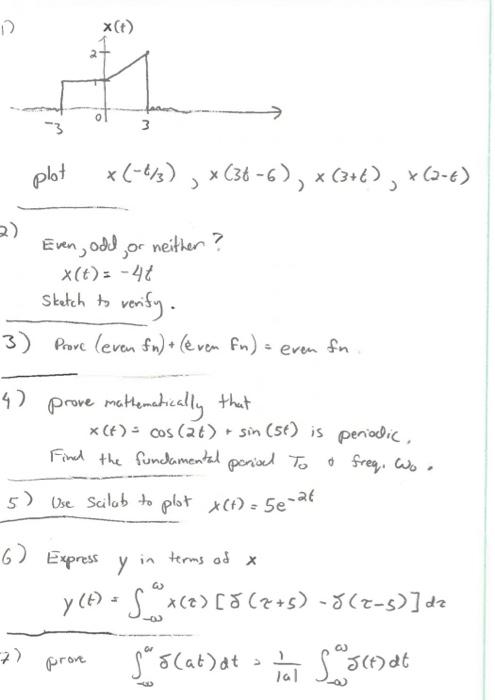 1) x(t)
2
1
-3 0 3
plot x(-t/3), x(3t-6), x(3+t), x(2-t)
2)
Even, odd, or neither?
x(t) = -4t
Sketch to verify.
3) Prove (even fn) + (even fn) = even fn.
4) prove mathematically that
x(t) = cos(2t) + sin(5t) is periodic.
Find the fundamental period T₀ & freq. ω₀.
5) Use Scilab to plot x(t) = 5e^-2t
6) Express y in terms of x
y(t) = ∫_-∞^∞ x(τ) [δ(τ+5) - δ(τ-5)] dτ
7) prove ∫_-∞^∞ δ(at) dt = 1/|a| ∫_-∞^∞ δ(t) dt